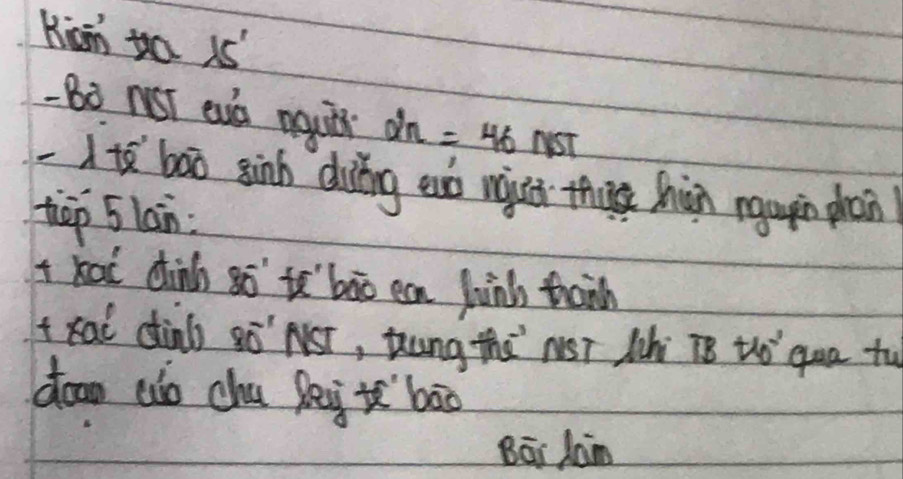 Kiểm tra 15'
- Bộ NST của người 2n = 46 NST
- 1 tế bào sinh dưỡng của người thực hiện nguyên phân l
tiếp 5 lần:
+ xác định số tế bào con hình thành
+ xác định số NST, trạng thái NST khi TB trải qua từ
đoạn của chu kỳ tế bào
Bài làm